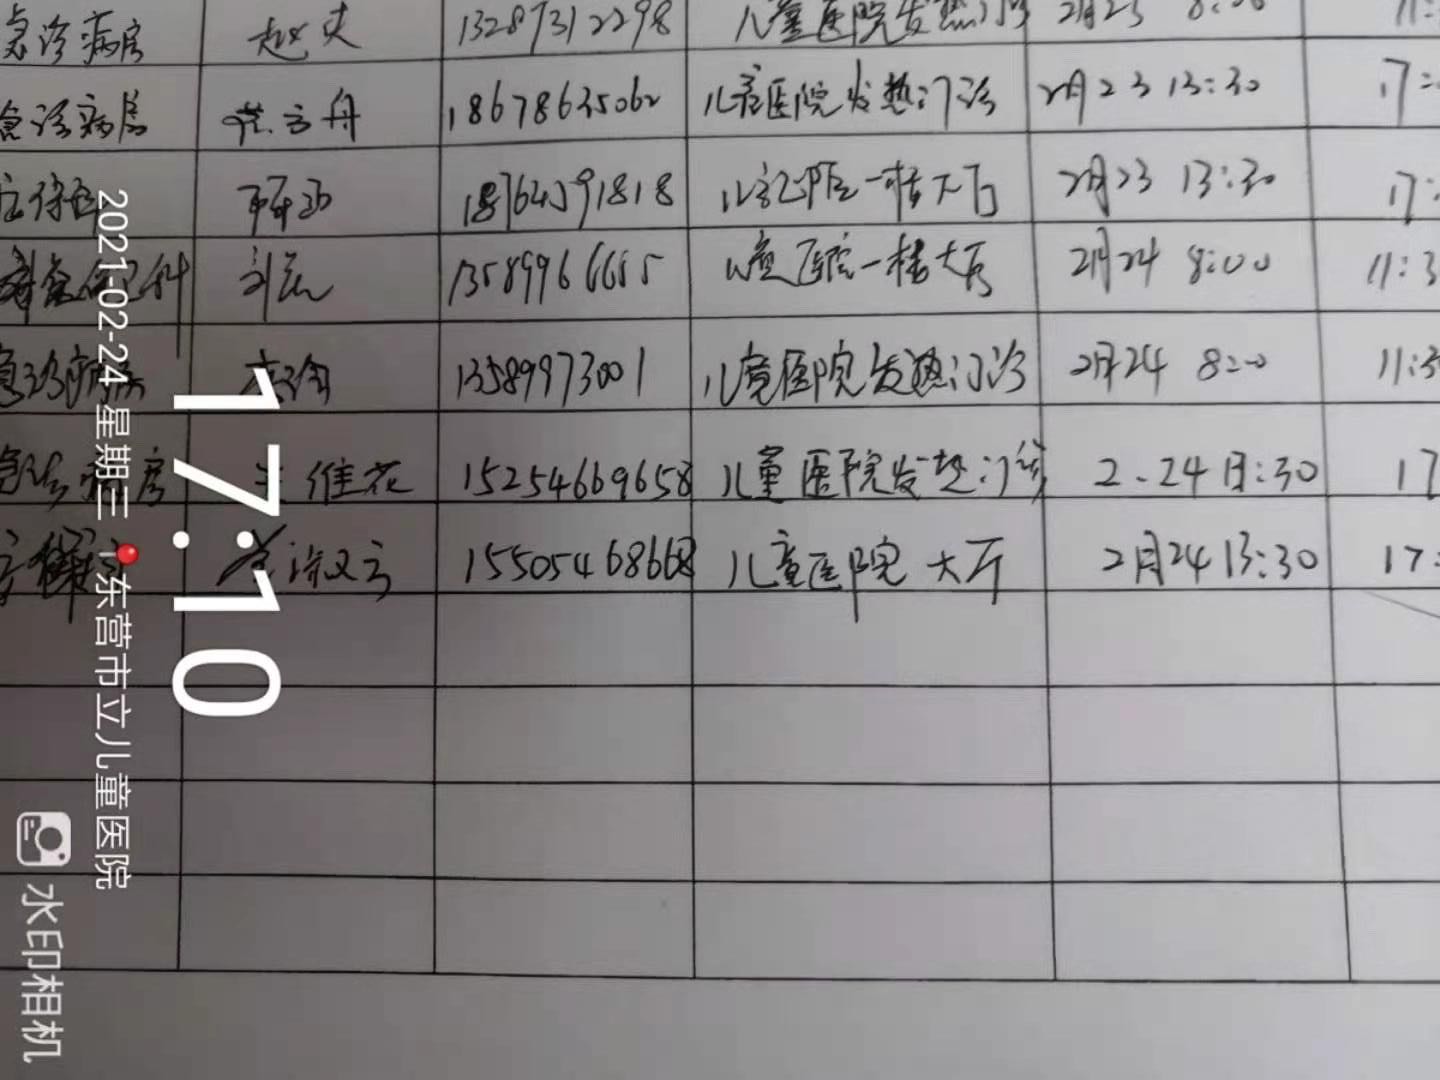 急诊病房 赵 13287312298 儿童医院发热门诊 2月23 8:00 11:
急诊病房 范方舟 18678635062 儿童医院发热门诊 2月23 13:30 17:
18764591818 儿童医院一楼大厅 2月23 13:30 17:
13589966665 儿童医院一楼大厅 2月24 8:00 11:3
急诊病房 13589973001 儿童医院发热门诊 2月24 8:00 11:3
急诊病房 维花 15254669658 儿童医院发热门诊 2.24日:30 17
15505468668 儿童医院 大厅 2月24 13:30 17:
17:10
2021-02-24 星期三 东营市立儿童医院
水印相机